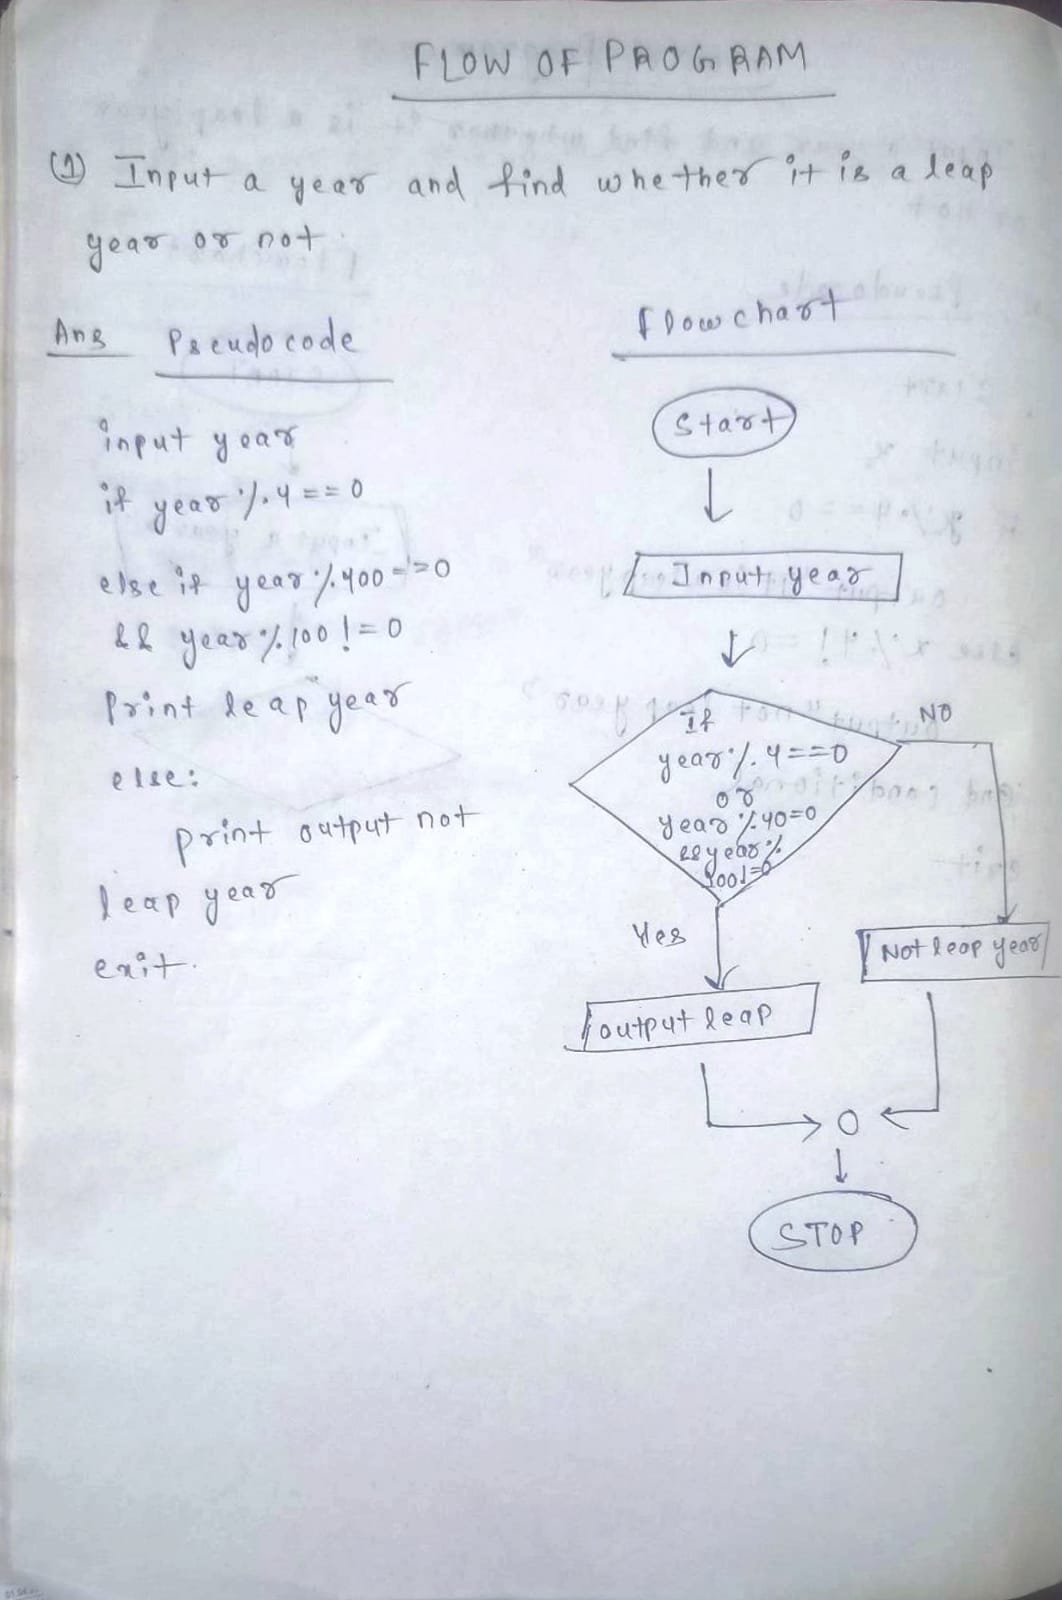 FLOW OF PROGRAM
(1) Input a year and find whether it is a leap
year or not.
Ans Pseudocode
input year
if year %.4 == 0
else if year %.400 == 0
&& year % 100 != 0
Print leap year
else:
print output not
leap year
exit.
flowchart
Start
Input year
If
year %. 4 == 0
or
year % 40=0
&&year %
100!=0
NO
Yes
Not leap year
output leap
O
STOP